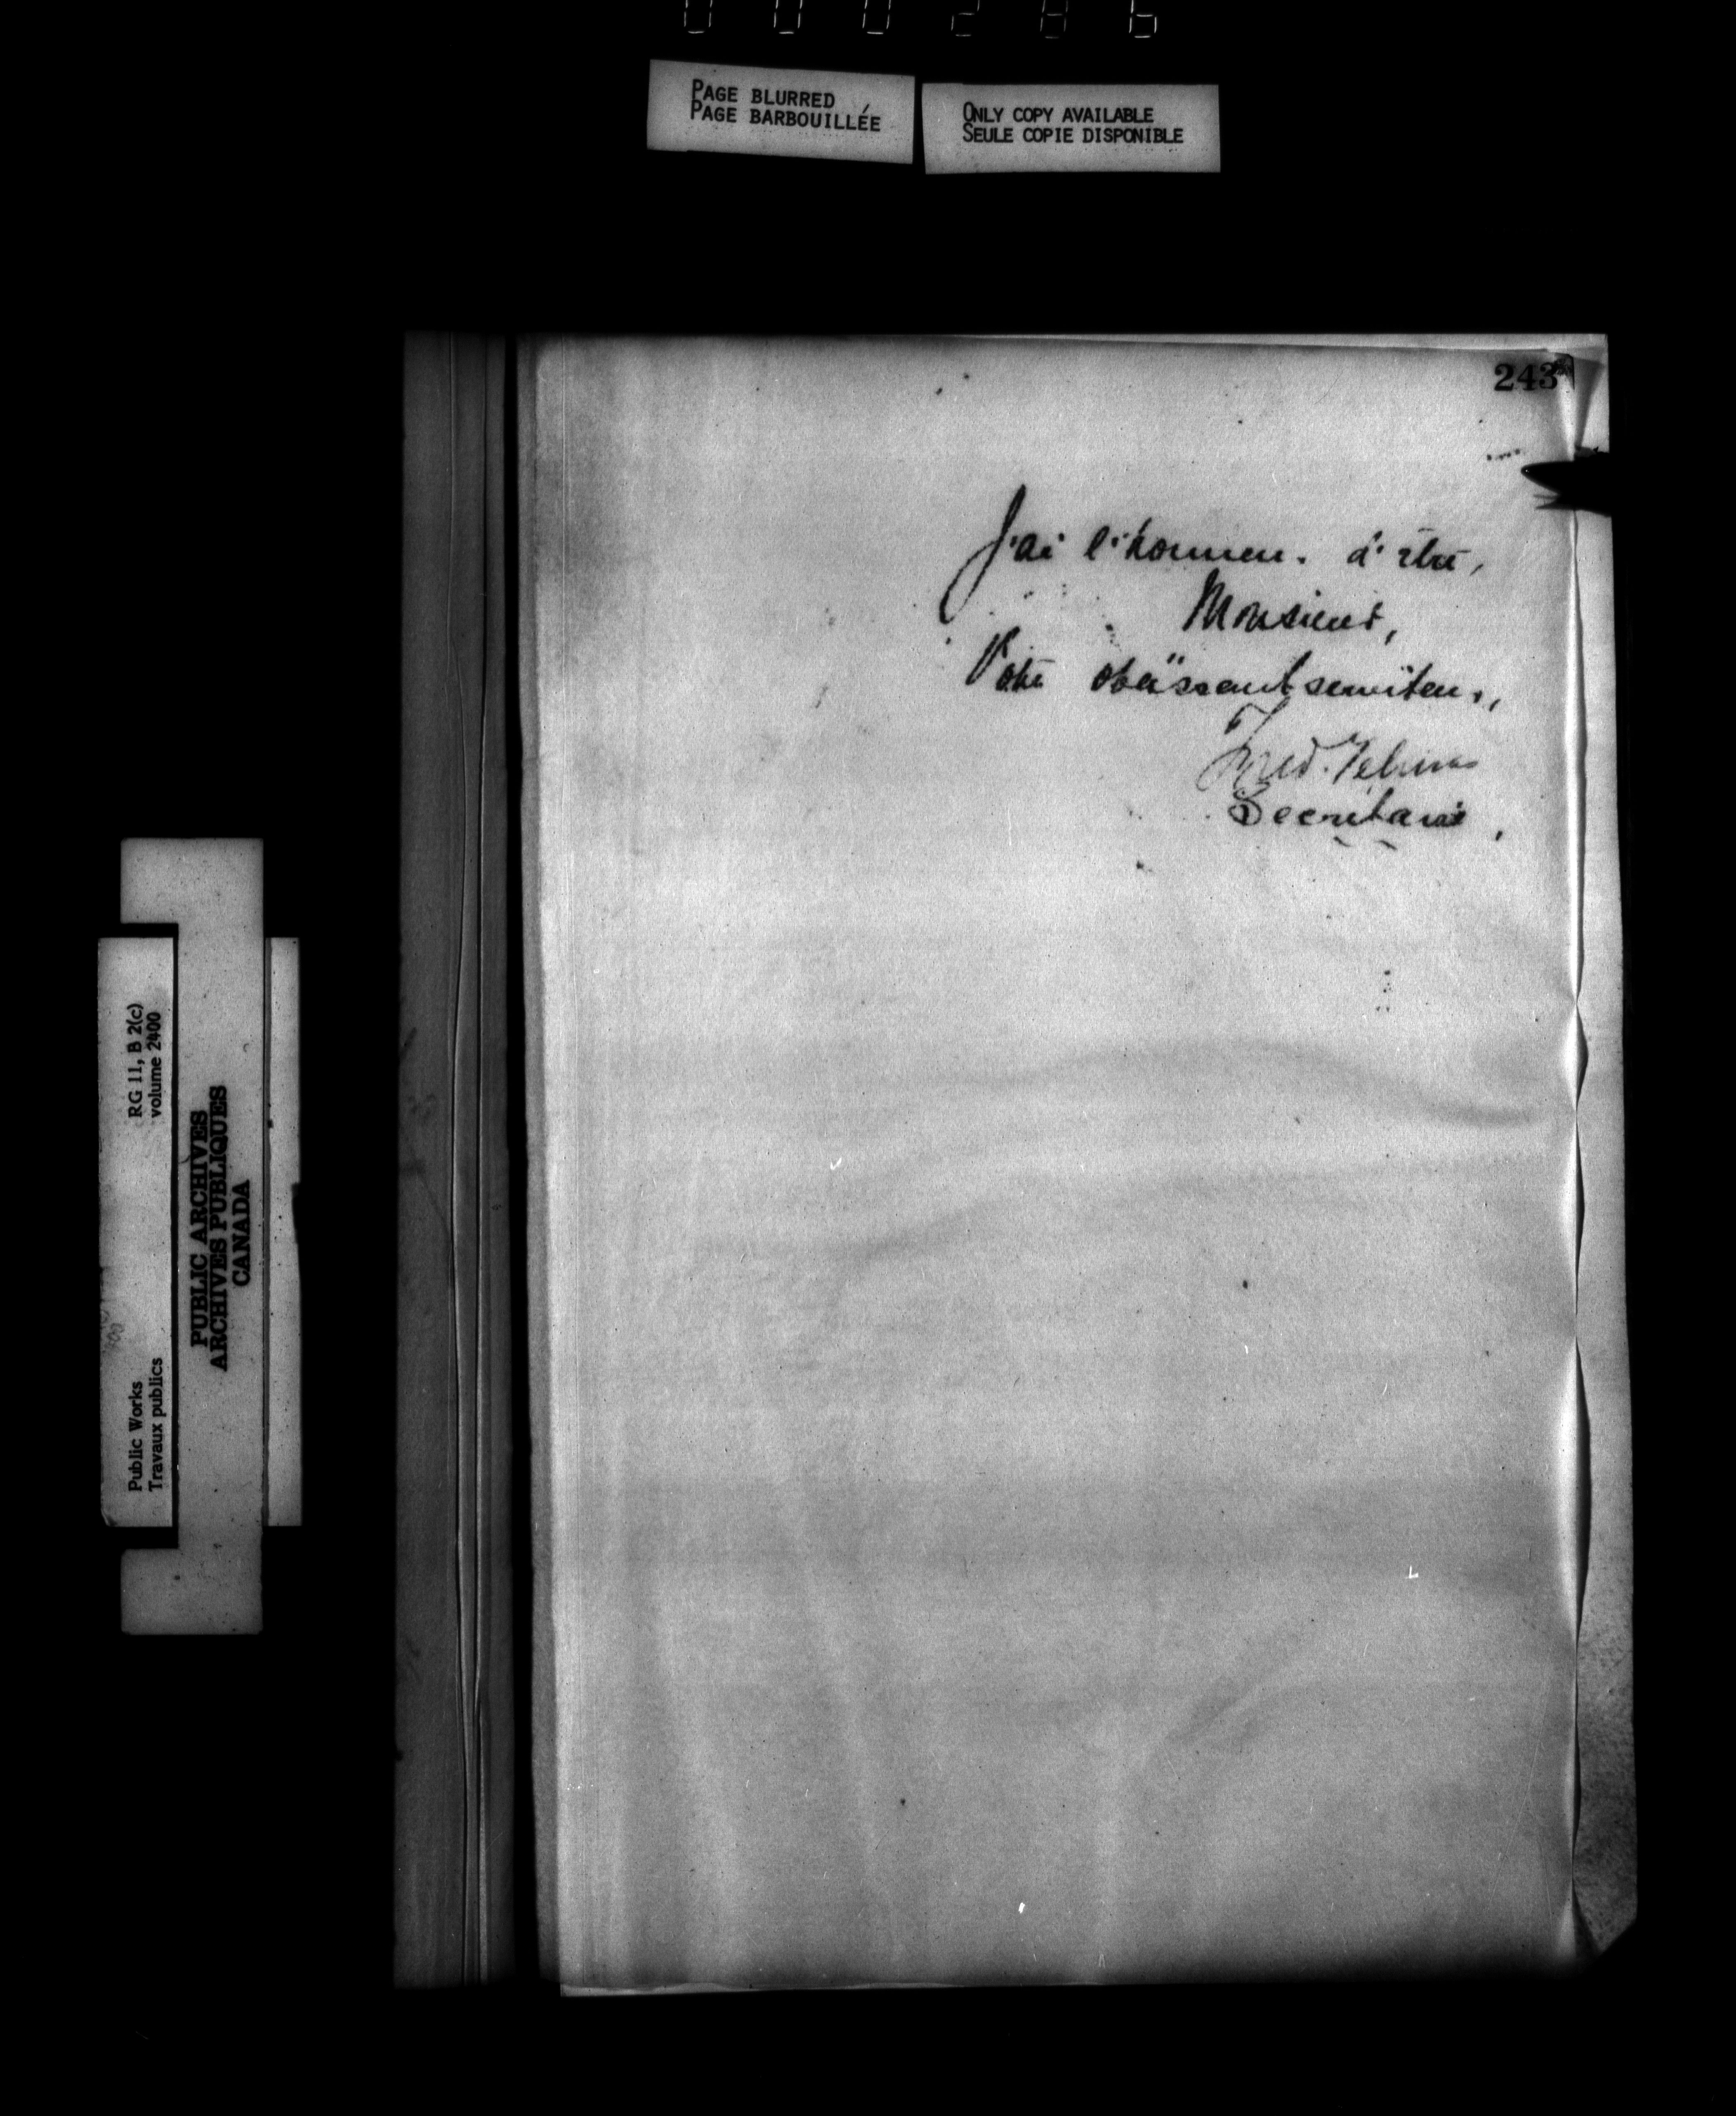 000286
PAGE BLURRED
PAGE BARBOUILLÉE
ONLY COPY AVAILABLE
SEULE COPIE DISPONIBLE
243
J'ai l'honneur d'être,
Monsieur,
Votre obéissant serviteur,
Fred. Gélinas
Secrétaire,
RG 11, B 2(c)
volume 2400
Public Works
Travaux publics
PUBLIC ARCHIVES
ARCHIVES PUBLIQUES
CANADA